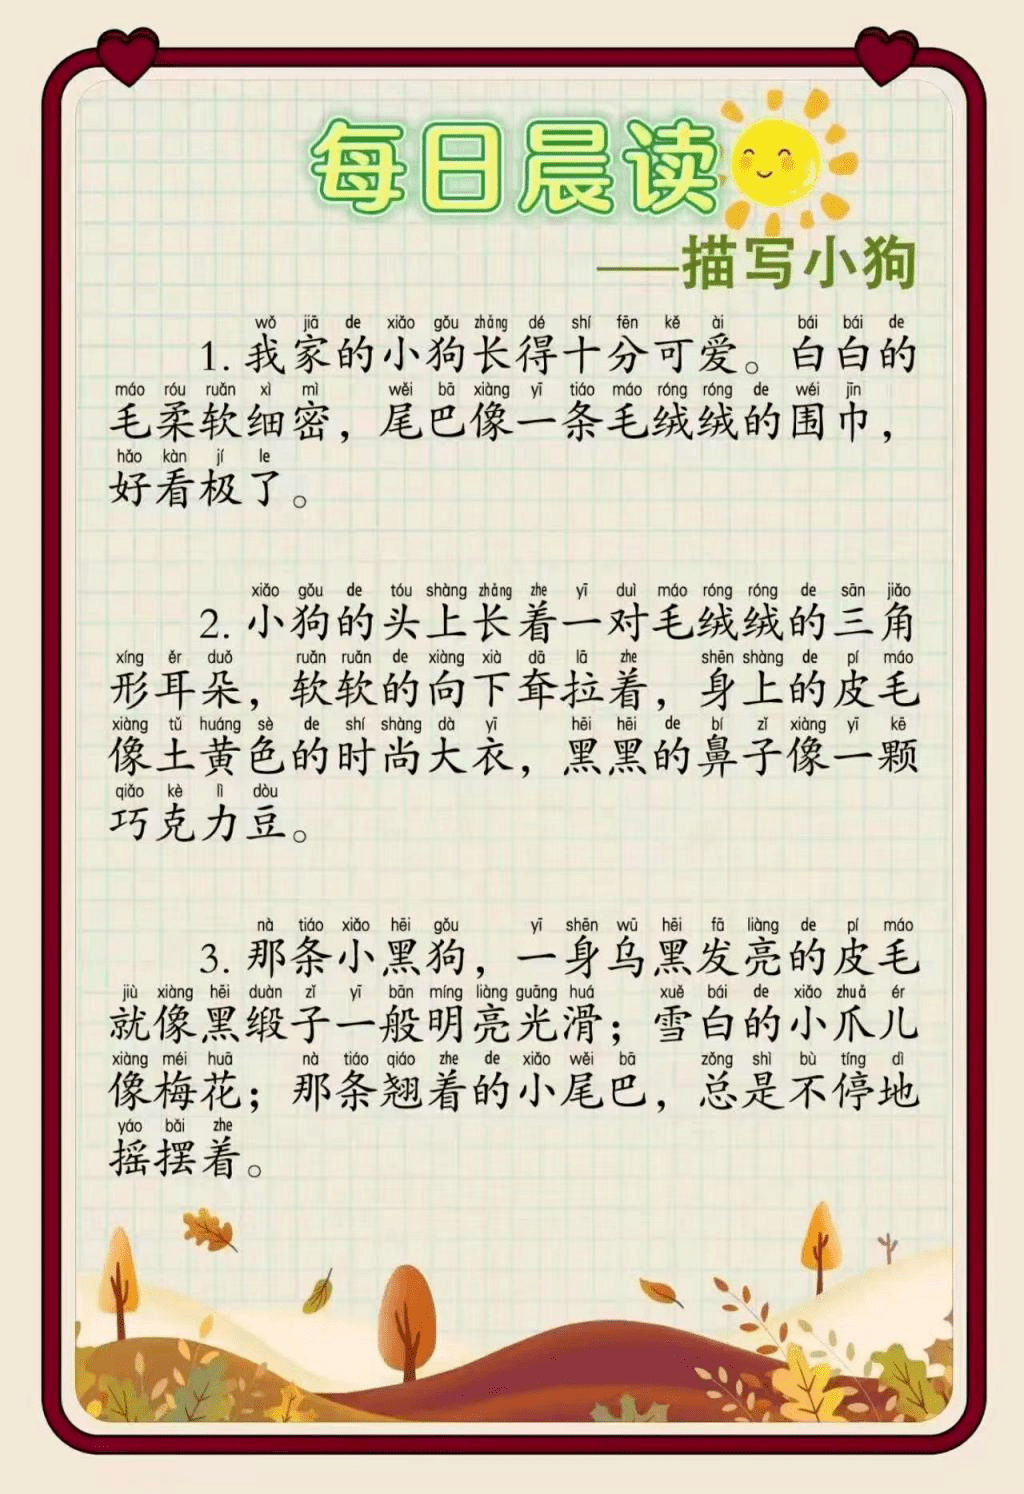 每日晨读
——描写小狗
wǒ jiā de xiǎo gǒu zhǎng dé shí fēn kě ài bái bái de
1. 我家的小狗长得十分可爱。白白的
máo róu ruǎn xì mì wěi bā xiàng yī tiáo máo róng róng de wéi jīn
毛柔软细密，尾巴像一条毛绒绒的围巾，
hǎo kàn jí le
好看极了。
xiǎo gǒu de tóu shàng zhǎng zhe yī duì máo róng róng de sān jiǎo
2. 小狗的头上长着一对毛绒绒的三角
xíng ěr duǒ ruǎn ruǎn de xiàng xià dā lā zhe shēn shàng de pí máo
形耳朵，软软的向下耷拉着，身上的皮毛
xiàng tǔ huáng sè de shí shàng dà yī hēi hēi de bí zǐ xiàng yī kē
像土黄色的时尚大衣，黑黑的鼻子像一颗
qiǎo kè lì dòu
巧克力豆。
nà tiáo xiǎo hēi gǒu yī shēn wū hēi fā liàng de pí máo
3. 那条小黑狗，一身乌黑发亮的皮毛
jiù xiàng hēi duàn zǐ yī bān míng liàng guāng huá xuě bái de xiǎo zhuǎ ér
就像黑缎子一般明亮光滑；雪白的小爪儿
xiàng méi huā nà tiáo qiáo zhe de xiǎo wěi bā zǒng shì bù tíng dì
像梅花；那条翘着的小尾巴，总是不停地
yáo bǎi zhe
摇摆着。